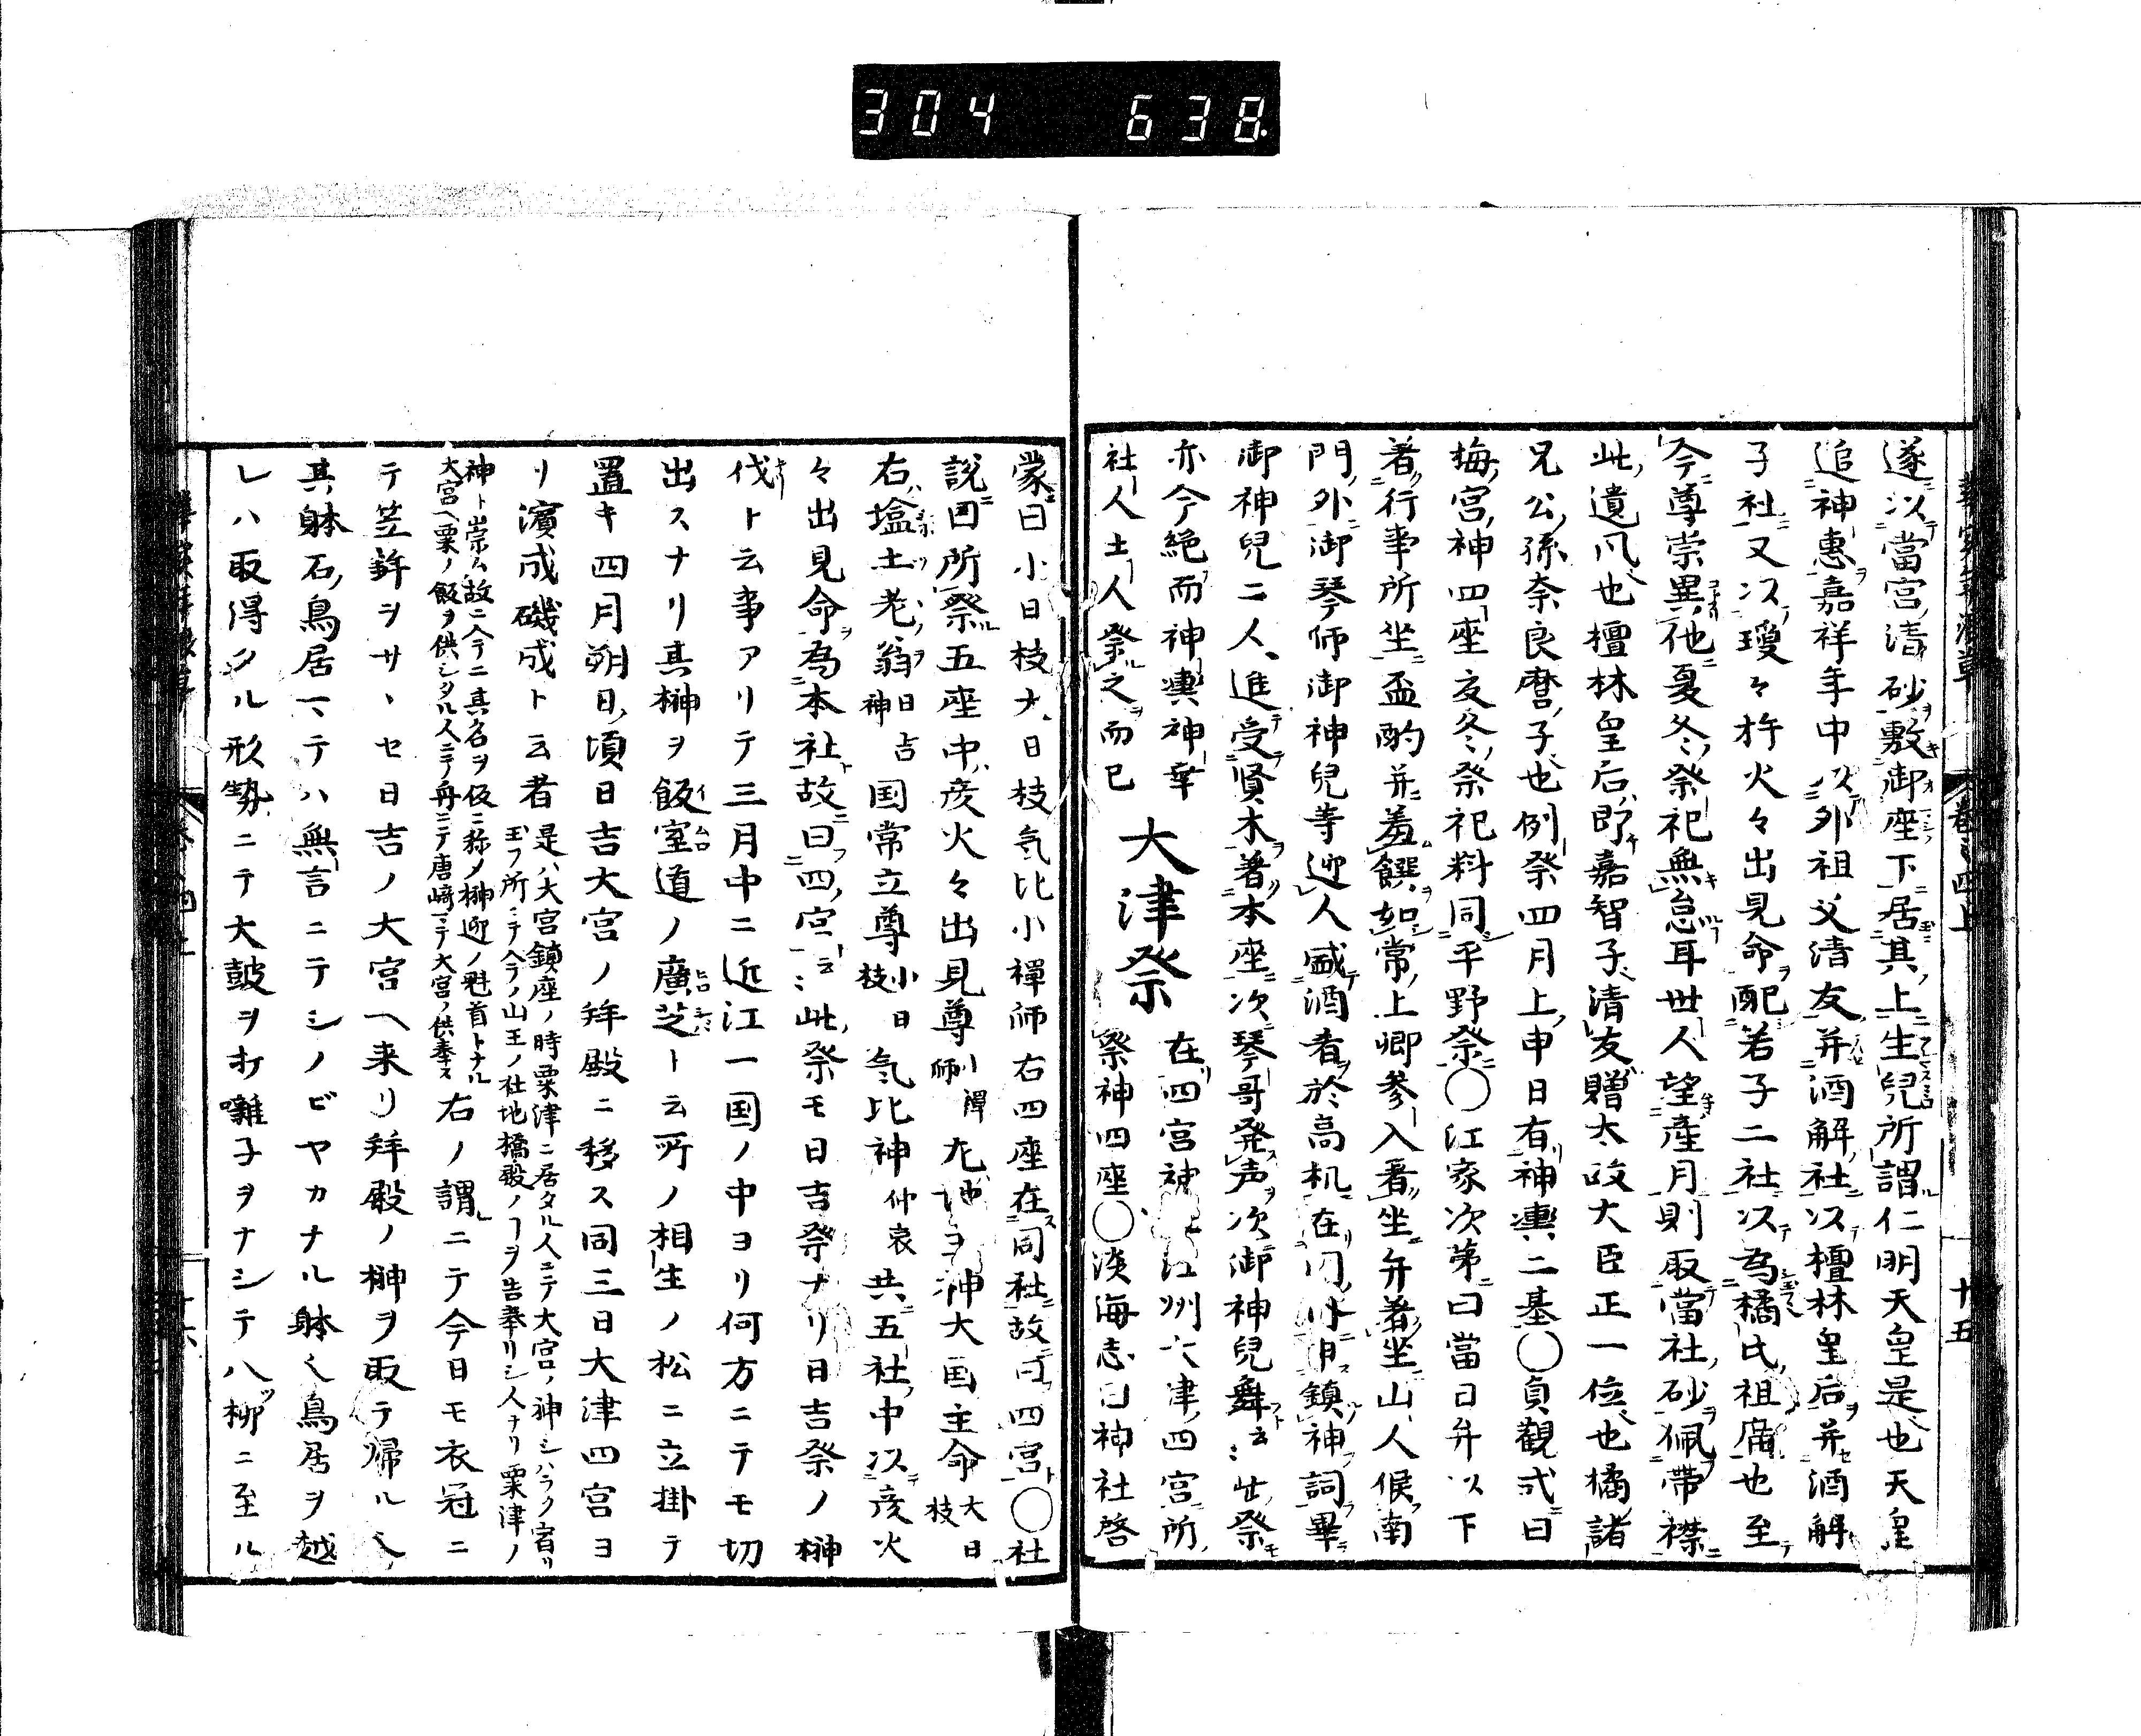 304 638
遂以當宮清砂敷御座下居其上生兒所謂仁明天皇是也天皇
追神惠嘉祥年中以外祖父清友并酒解社以檀林皇后并酒解
子社又以瓊々杵火々出見命配若子二社以為橘氏祖庿也至
今尊崇異他夏冬祭祀無怠耳世人望產月則取當社砂佩帶襟
此遺風也檀林皇后即嘉智子清友贈太政大臣正一位也橘諸
兄公孫奈良麿子也例祭四月上申日有神輿二基〇貞觀式曰
梅宮神四座夏冬祭祀料同平野祭〇江家次第曰當日弁以下
著行事所坐盃酌并羞饌如常上卿參入着坐弁著坐山人候南
門外御琴師御神兒等迎人盛酒肴於高机在門鎮神詞畢
御神兒二人進受賢木著本座次琴哥発声次御神兒舞云〻此祭
亦今絶而神輿神幸
社人土人祭之而已
大津祭
在四宮神江州大津四宮所
祭神四座〇淡海志曰神社啓
蒙曰小日枝大日枝気比小禪師右四座在同社故曰四宮〇社
說曰所祭五座中彦火々出見尊小禪師尢地ヨ神大国主命大日枝
右塩土老翁日吉神国常立尊小日枝気比神仲哀共五社中以彦火
々出見命為本社故曰四宮云〻此祭モ日吉祭ナリ日吉祭ノ榊
伐ト云事アリテ三月中ニ近江一国ノ中ヨリ何方ニテモ切
出スナリ其榊ヲ飯室道ノ廣芝ト云所ノ相生ノ松ニ立掛テ
置キ四月朔日頃日吉大宮ノ拜殿ニ移ス同三日大津四宮ヨ
リ濱成磯成ト云者
是ハ大宮鎮座ノ時粟津ニ居タル人ニテ大宮ノ神シハラク宿リ
玉フ所ニテ今ノ山王ノ社地橋殿ノヿヲ告奉リシ人ナリ粟津ノ
神ト崇ム故ニ今ニ其名ヲ仮ニ称ノ榊迎ノ魁首トナル
大宮ヘ粟ノ飯ヲ供シタル人ニテ舟ニテ唐﨑マテ大宮ノ供奉ス
右ノ謂ニテ今日モ衣冠ニ
テ笠鉾ヲサヽセ日吉ノ大宮ヘ来リ拜殿ノ榊ヲ取テ帰ル〱
其躰石鳥居マテハ無言ニテシノビヤカナル躰〱鳥居ヲ越
レハ取得タル形㔟ニテ大皷ヲ打囃子ヲナシテ八柳ニ至ル
卷之四上
十五